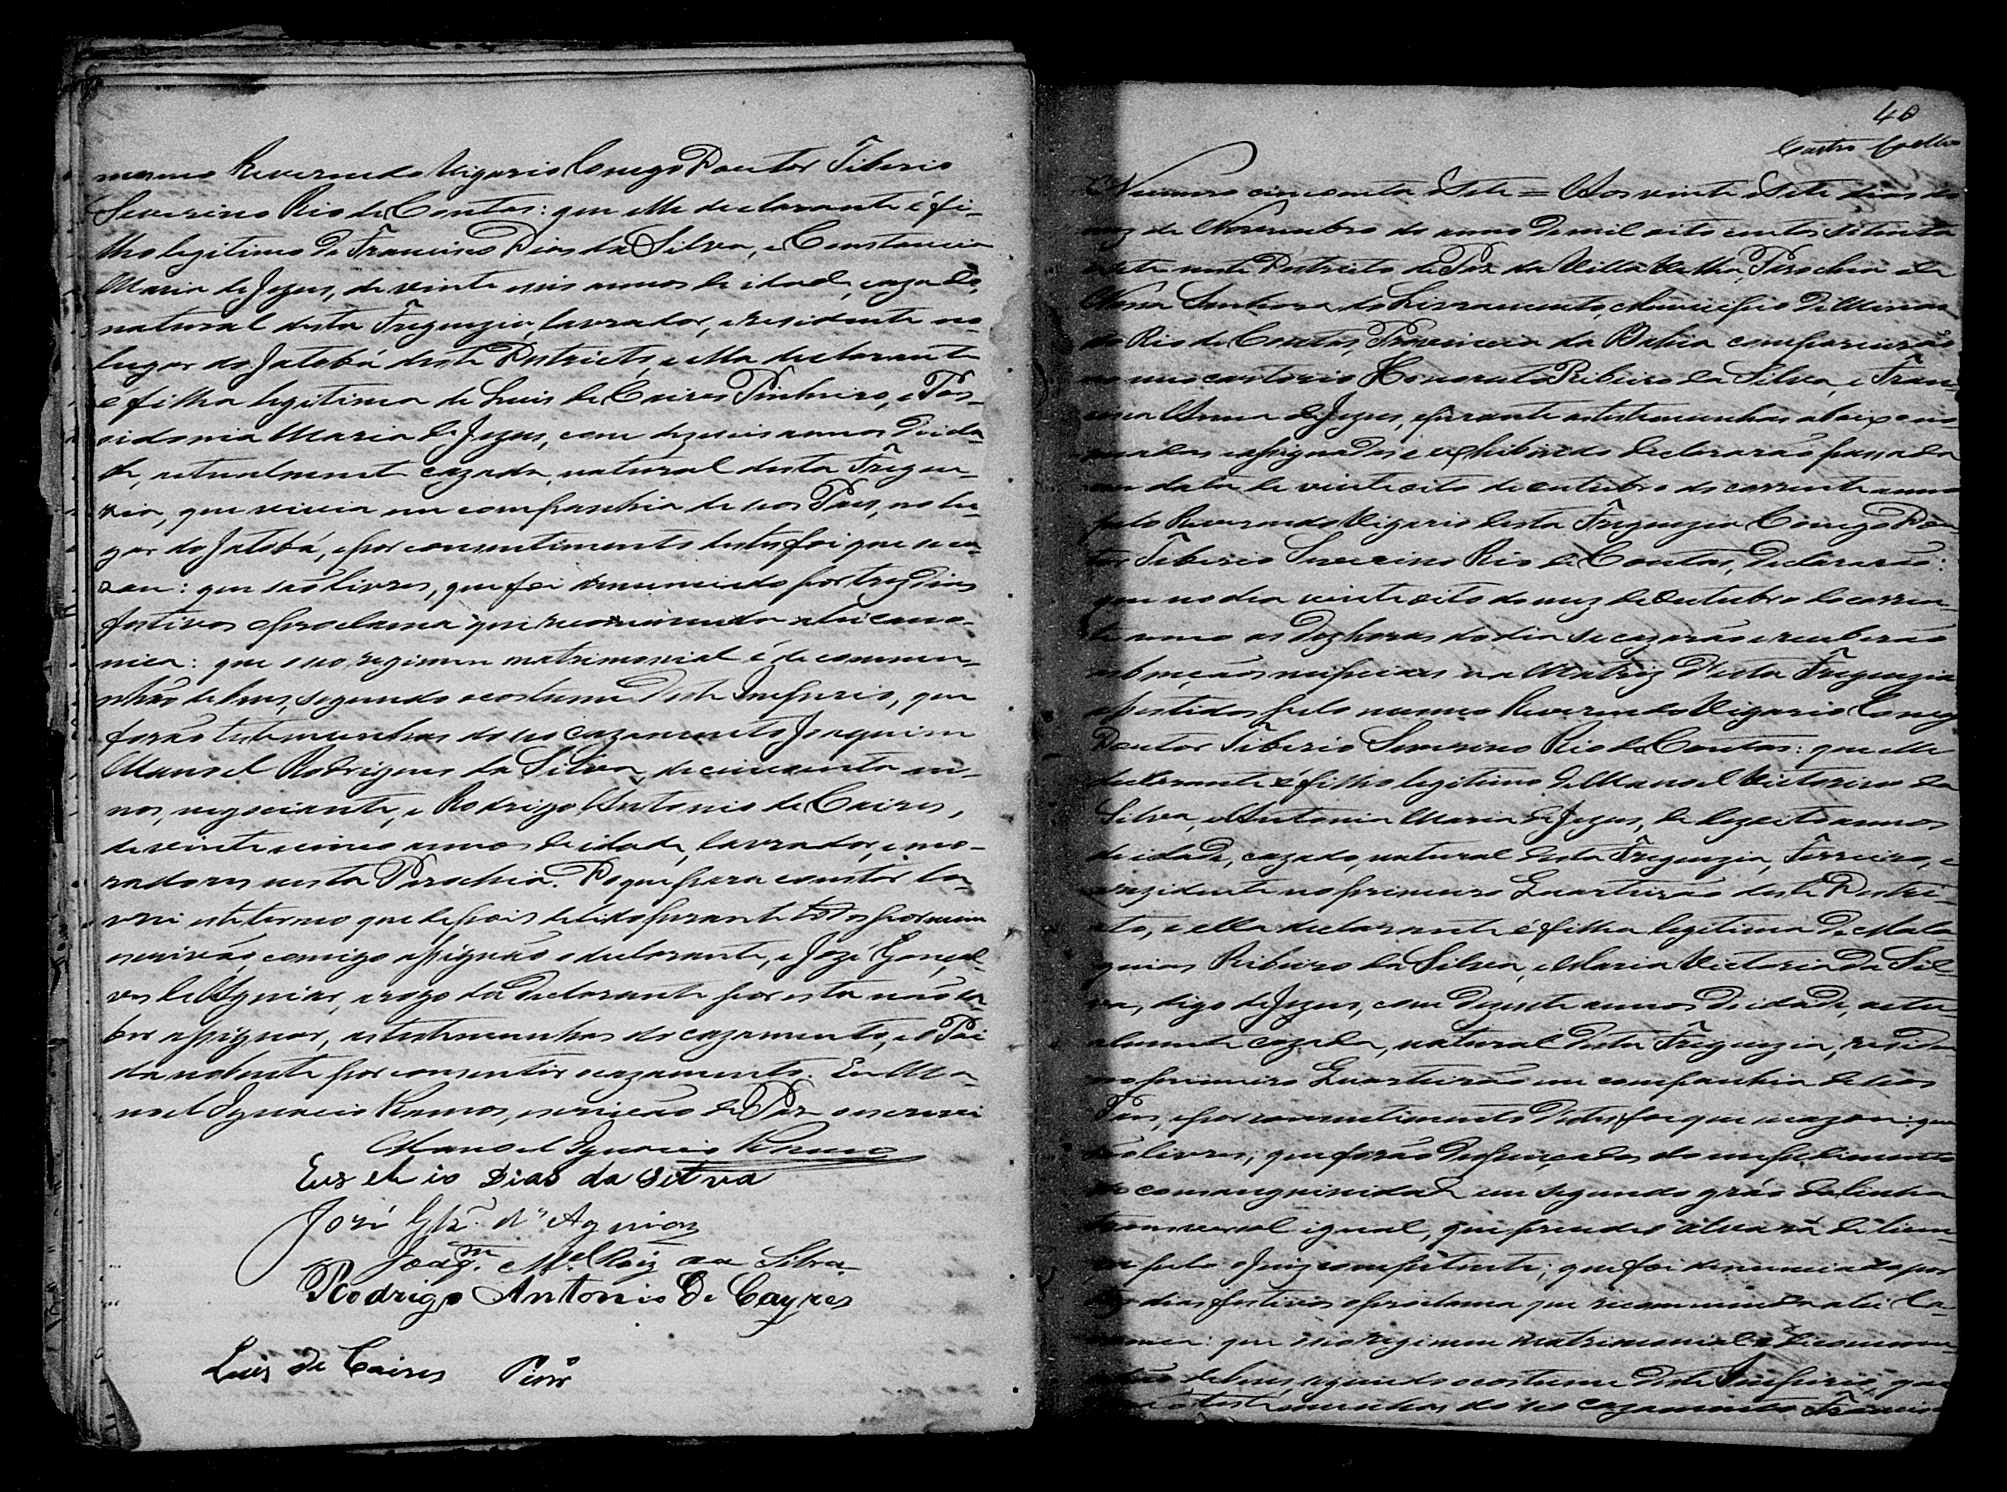 mesmo Reverendo Vigario Conego Doutor Tiberio
Severino Rio de Contas: que elle declarante é fi-
lho legitimo de Francisco Dias da Silva, e Constancia
Maria de Jezus, de vinte seis annos de idade, cazado,
natural desta Freguezia, lavrador, e residente no
lugar do Jatobá deste Destricto, e ella declarante
é filha legitima de Luis de Caires Pinheiro, e Pos-
sidonia Maria de Jezus, com dezeseis annos de ida-
de, actualmente cazada, natural desta Fregue-
zia, que vivia em companhia de seos Paes, no lu-
gar do Jatobá, e por consentimento destes foi que se ca-
zou: que são livres, que foi denunciado por trez dias
festivos e proclama que recommenda a lei cano-
nica: que o seo regimen matrimonial é de commu-
nhão de bens, segundo o costume deste Imperio, que
forão testemunhas do seo cazamento Joaquim
Manoel Rodrigues da Silva, de cincoenta an-
nos, negociante, e Rodrigo Antonio de Caires,
de vinte cinco annos de idade, lavrador, e mo-
radores nesta Parochia. Do que para constar la-
vrei este termo que depois de lido perante todos por mim
escrivão, comigo assignão o declarante, e Jozé Gonçal-
ves de Aguiar, a rogo da declarante por esta não sa-
ber assignar, as testemunhas do cazamento, e o Pai
da nubente por consentir o cazamento. Eu Ma-
noel Ignacio Ramos, escrivão de Paz o escrevi
Manoel Ignacio Ramos
Euzebio Dias da Silva
José Glz. d' Aguiar
Joaqm. Mel. Roiz da Silva
Rodrigo Antonio de Cayres
Luis de Caires Pinro
40
Castro Coelho
Numero cincoenta e sete = Aos vinte e sete dias do
mez de Novembro do anno de mil oito centos setenta
e sete neste Destricto de Paz da Villa Velha, Parochia de
Nossa Senhora do Livramento, Municipio de Minas
do Rio de Contas, Provincia da Bahia comparecerão
no meu cartorio Honorato Ribeiro da Silva, e Fran-
cisca Anna de Jezus, e perante as testemunhas abaixo no-
meadas e assignadas, e exhibindo declararão passada
em data de vinte oito de outubro do corrente anno
pelo Reverendo Vigario desta Freguezia Conego Dou-
tor Tiberio Severino Rio de Contas, declararão:
que no dia vinte oito do mez de Outubro do corren-
te anno as dez horas do dia se cazarão e receberão
as bençãos nupciaes na Matriz desta Freguezia
assistidos pelo mesmo Reverendo Vigario Conego
Doutor Tiberio Severino Rio de Contas: que elle
declarante é filho legitimo de Manoel Victorino da
Silva, e Antonia Maria de Jezus, de dezoito annos
de idade, cazado, natural desta Freguezia, Ferreiro, e
rezidente no primeiro Quarteirão deste Destri-
cto, e ella declarante é filha legitima de Mala-
quias Ribeiro da Silva, e Maria Victoria da Sil-
va, digo de Jezus, com dezesete annos de idade, actu-
almente cazada, natural desta Freguezia, residia
no primeiro Quarteirão em companhia de seos
Paes, e por consentimento destes foi que se cazou: que
são livres; que forão despensados do impedimento
de consanguinidade em segundo gráo da linha
transversal igual, que prendeo alvará de licen-
ça pelo Juiz competente; que foi denunciado por
trez dias festivos e proclama que recommenda a lei Ca-
nonica: que o seo regimen matrimonial é de commu-
nhão de bens, segundo o costume deste Imperio, que
forão testemunhas do seo cazamento Francisco